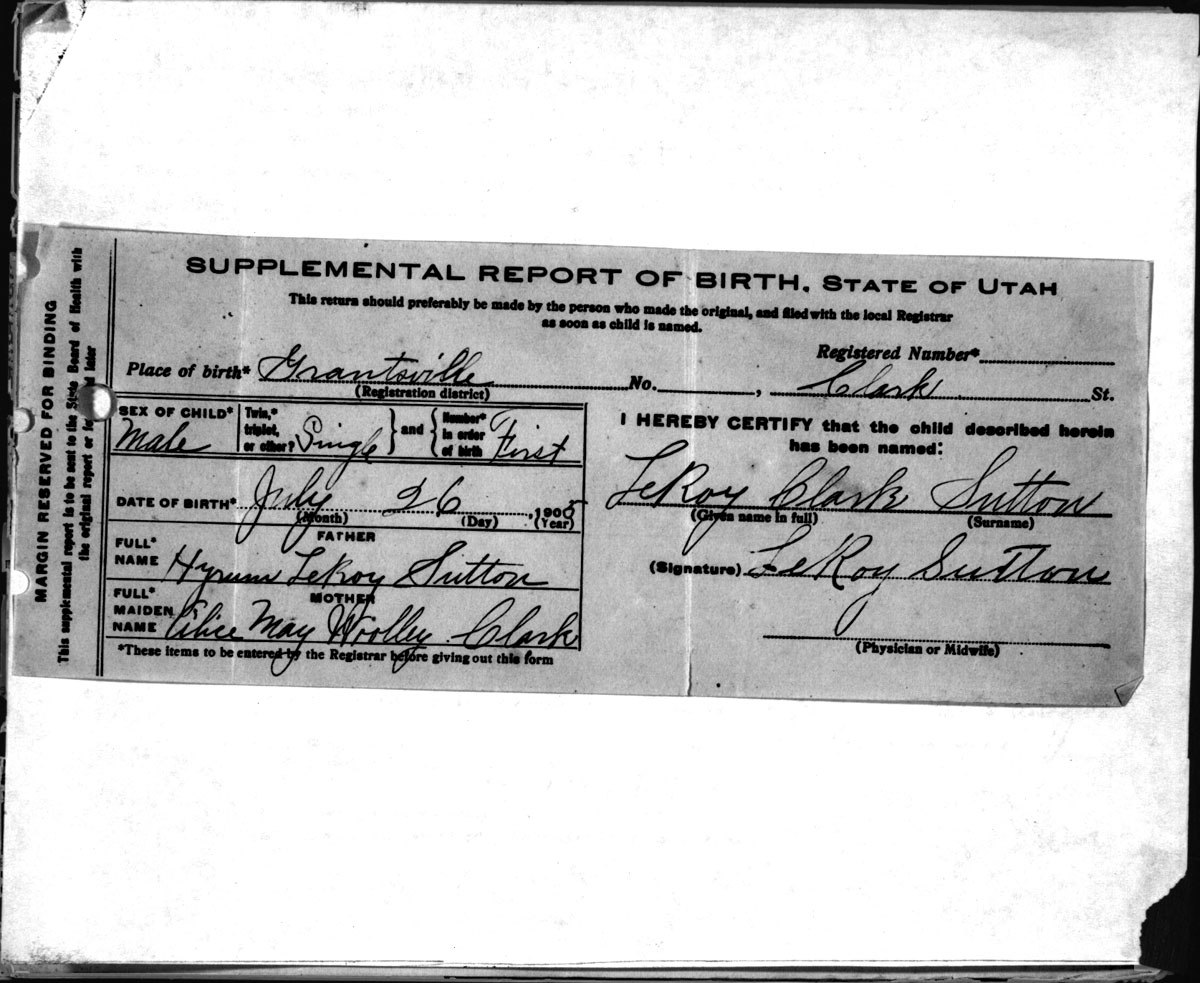 SUPPLEMENTAL REPORT OF BIRTH, STATE OF UTAH
This return should preferably be made by the person who made the original, and filed with the local Registrar
as soon as child is named.
Registered Number*
Place of birth* Grantsville No. , Clark St.
(Registration district)
SEX OF CHILD* Male
Twin,* triplet, or other? Single } and { Number* in order of birth First
DATE OF BIRTH* July 26, 1905
(Month) (Day) (Year)
FATHER
FULL* NAME Hyrum LeRoy Sutton
MOTHER
FULL* MAIDEN NAME Alice May Woolley Clark
*These items to be entered by the Registrar before giving out this form
I HEREBY CERTIFY that the child described herein
has been named:
LeRoy Clark Sutton
(Given name in full) (Surname)
(Signature) LeRoy Sutton
(Physician or Midwife)
MARGIN RESERVED FOR BINDING
This supplemental report is to be sent to the State Board of Health with
the original report or later